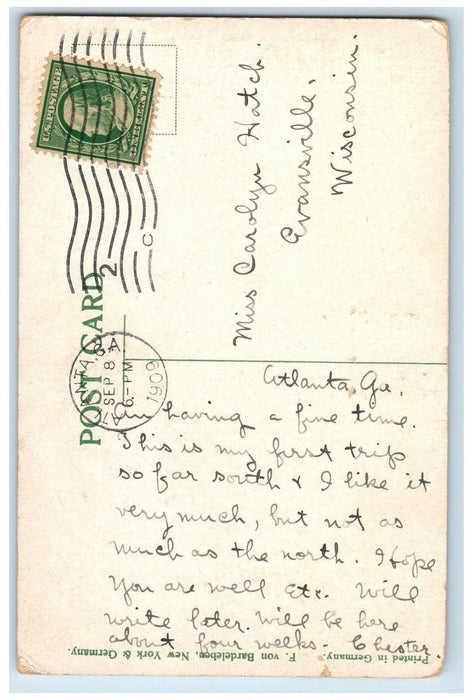 U.S. POSTAGE
ONE CENT
2
C
POST CARD
ATLANTA, GA
SEP 8
6-PM
1909
Miss Carolyn Hatch.
Evansville.
Wisconsin.
Atlanta, Ga,
Am having a fine time.
This is my first trip
so far south & I like it
very much, but not as
much as the north. I hope
you are well etc. Will
write later. Will be here
about four weeks - Chester.
F. von Bardeleben, New York & Germany. Printed in Germany.